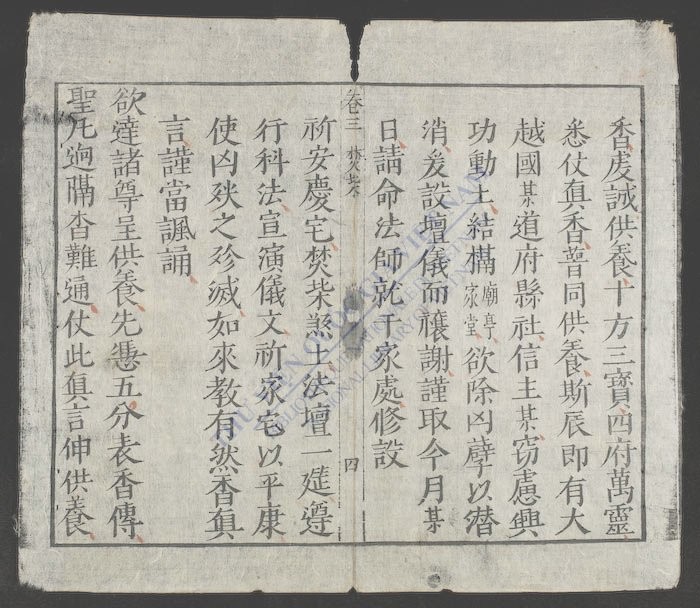 香虔誠供養十方三寶四府萬靈
悉仗眞香普同供養斯辰即有大
越國某道府縣社信主某窃慮興
功動土結構廟亭家堂欲除凶孽以潜
消爰設壇儀而禳謝謹取今月某
日請命法師就于家處修設
卷三 焚柴 四
祈安慶宅焚柴煞土法壇一筵遵
行科法宣演儀文祈家宅以平康
使凶殃之殄滅如來教有然香眞
言謹當諷誦
欲達諸尊呈供養先憑五分表香傳
聖凡迥隔杳難通仗此眞言伸供養
THƯ VIỆN QUỐC GIA VIỆT NAM
NATIONAL LIBRARY OF VIETNAM